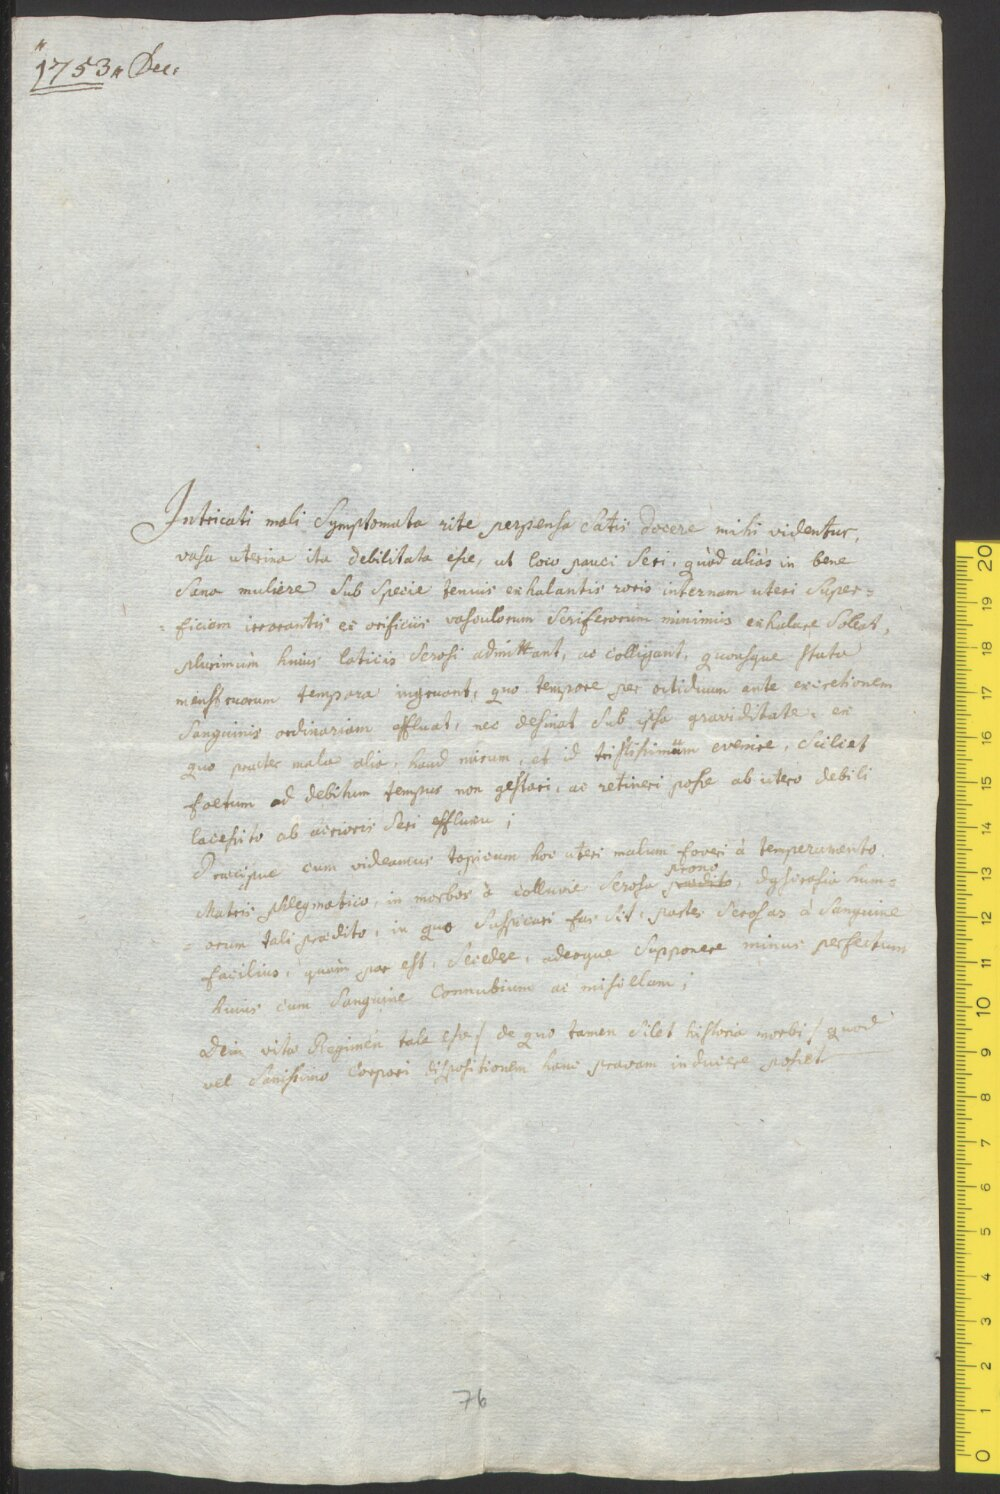 1753 Dec:
Intricati mali Symptomata rite perpensa Satis docere mihi videntur,
vasa uterina ita debilitata esse, ut loco pauci Seri, quòd aliàs in bene
Sana muliere Sub Specie tenuis exhalantis roris internam uteri Super=
=ficiem irrorantis ex orificiis vasculorum Seriferorum minimis exhalare Soleat,
plurimùm huius laticis Serosi admittant, ac colligant, quousque Stata
menstruorum tempora ingruant, quo tempore per octiduum ante excretionem
Sanguinis ordinariam effluat, nec desinat Sub ipsa graviditate, ex
quo praeter mala alia, haud mirum, et id tristissimum evenire, Scilicet
foetum ad debitum tempus non gestari, ac retineri posse ab utero debili
lacessito ab acrioris Seri effluxu;
Praecipue cum videamus topicum hoc uteri malum foveri à temperamento
Matris phlegmatico, in morbos à colluvie Serosa prono, dyscrasia hum=
=orum tali praedito, in quo Suspicari fas Sit, partes Serosas à Sanguine
facilius, quàm par est, Secedere, adeoque Supponere minus perfectum
huius cum Sanguine Connubium ac miscellam;
Dein vitae Regimen tale esse / de quo tamen Silet historia morbi / quod
vel Sanissimo Corpori dispositionem hanc pravam inducere posset
76
20
19
18
17
16
15
14
13
12
11
10
9
8
7
6
5
4
3
2
1
0